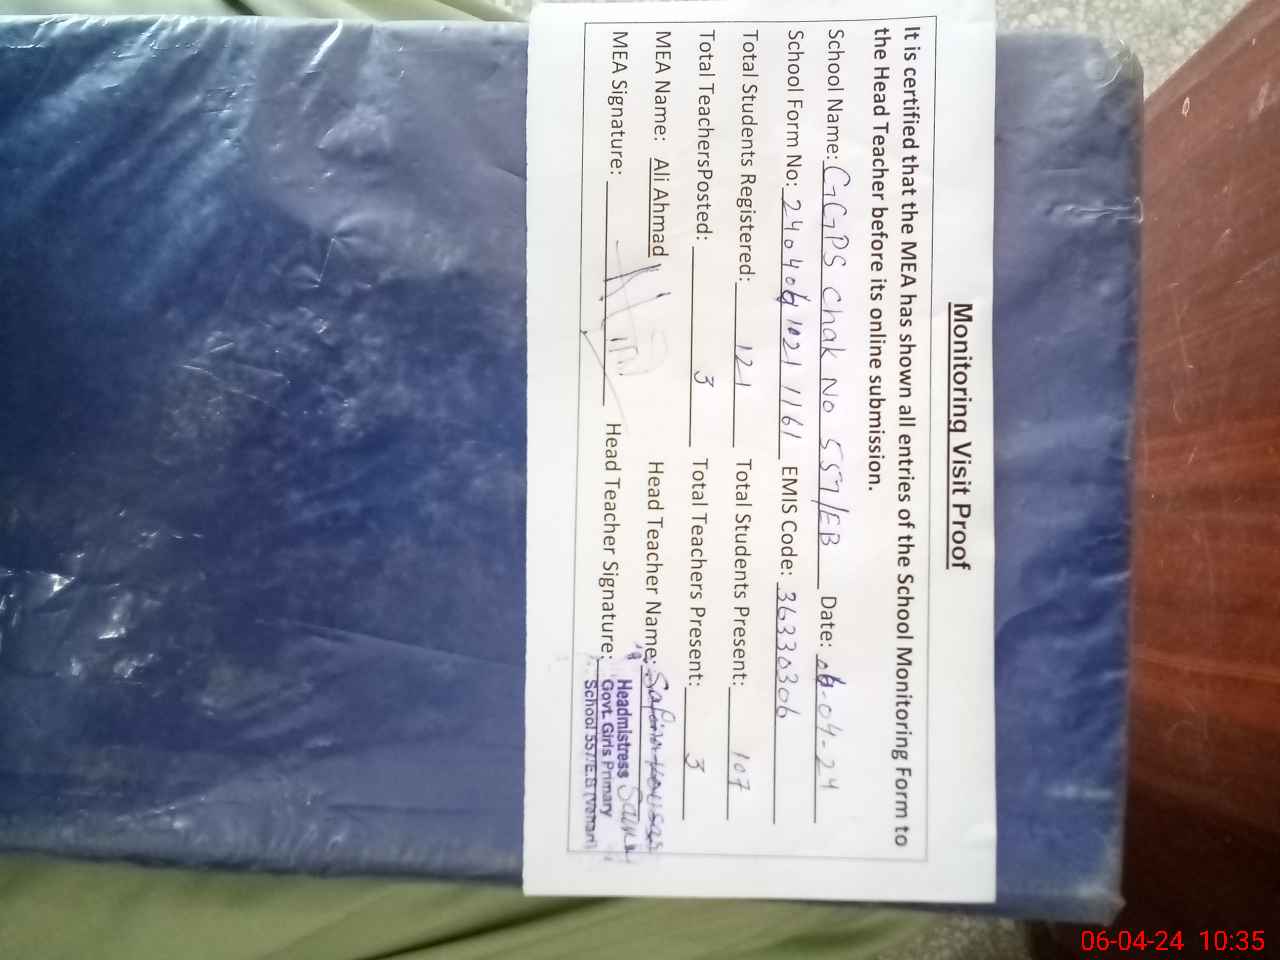 Monitoring Visit Proof
It is certified that the MEA has shown all entries of the School Monitoring Form to
the Head Teacher before its online submission.
School Name: GGPS Chak No 557/EB Date: 06-04-24
School Form No: 24040610211161 EMIS Code: 36330306
Total Students Registered: 121 Total Students Present: 107
Total TeachersPosted: 3 Total Teachers Present: 3
MEA Name: Ali Ahmad Head Teacher Name:
MEA Signature: Head Teacher Signature:
Headmistress
Govt. Girls Primary
School 557/E.B (Vehari)
06-04-24 10:35